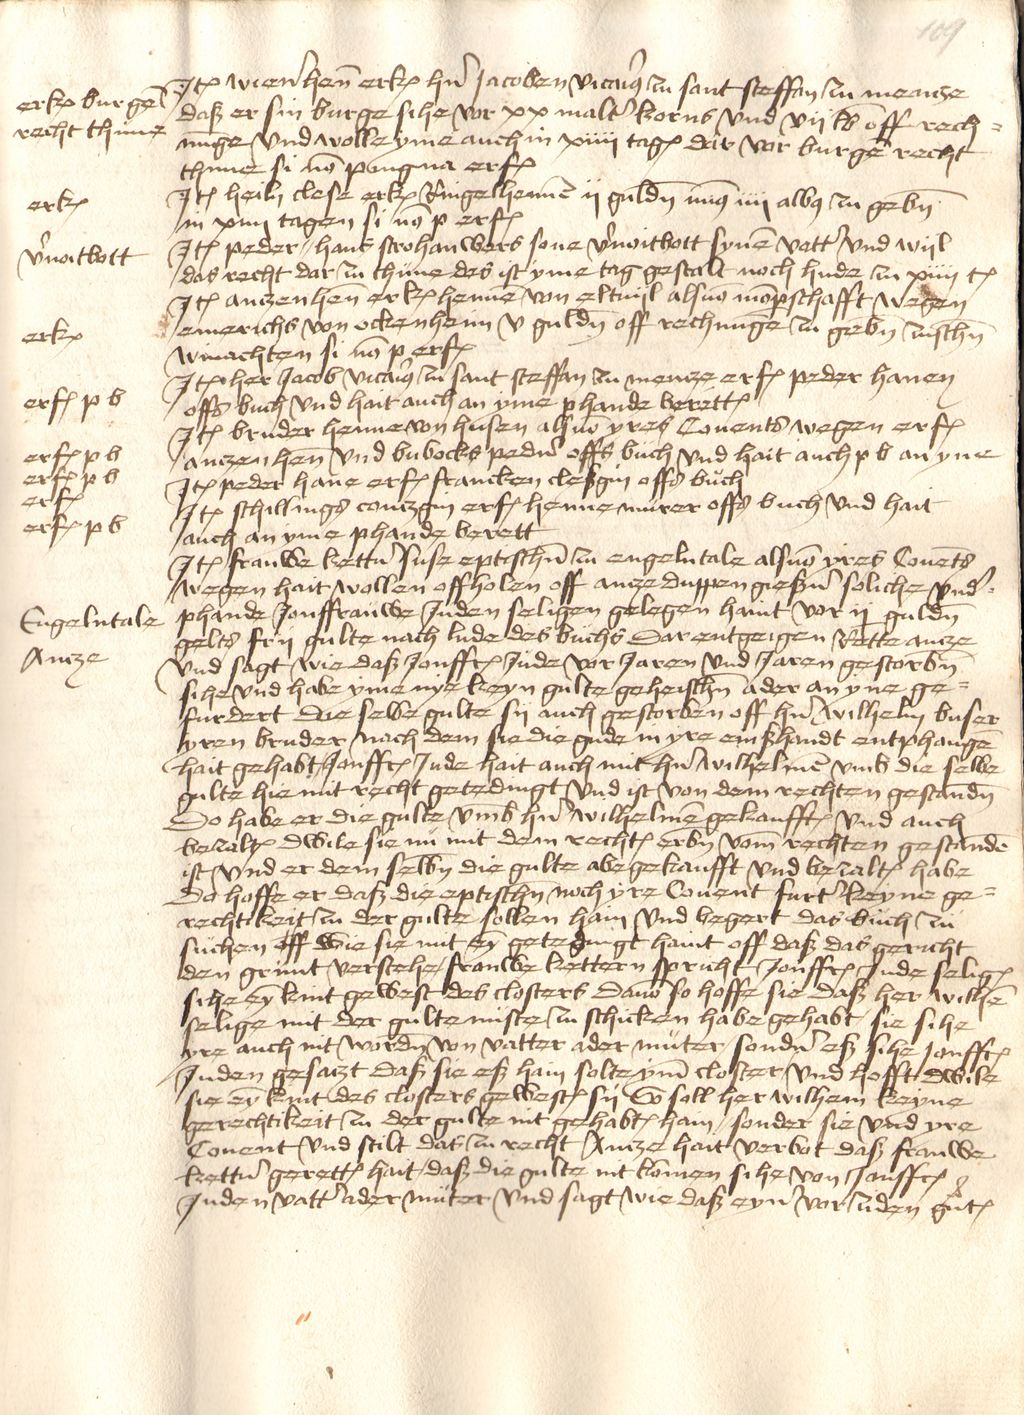 109
Itē wieñ heñ erkē hn̄ Jacoben vicariꝰ zu sant steffan zu mencze
erkē burgeñ
daß er sin burge sihe vor xx malt̄ korns vnd vij lb off rech=
recht thune
nūge vnd wolle yme auch in xiiij tagē dar vor burgē recht
thune si nō pūgūa erfē
Itē heiln̄ clese erkē Ringelhennē ij guldn̄ minꝰ iiij albꝰ zu gebn̄
erkē
in xiiij tagen si nō p erfē
v̄noitbott
Itē peder hans strohauwers sone v̄noitbott synē vatt̄ vnd wijl
das recht dar zu thune des ist yme tag gestalt noch hude zu xiiij tē
Itē anczenhen erkē hennē von eltvijl alsvō mōpschafft wegen
erkē
emerichs von ockenheim v guldn̄ off rechnūge zu gebn̄ zuschn̄
winachten si nō p erfē
Itē her Jacob vicariꝰ zu sant steffan zu mencze erfē peder hanen
erfē p b
offs buch vnd hait auch an yme phande berettē
Itē bruder henne von husen alsvō yres Couents wegen erfē
erfē p b
anczenhen vnd bubocks pedeñ offs buch vnd hait auch p b an yne
erfē p b
Itē peder hane erfē francken cleßgin offs buch
erfē
Itē schillings conczgin erfē henne murer offs buch vnd hait
erfē p b
auch an yme phande berett
Itē frauwe kettñ suse eptischn̄ zu engelntale alsvō yres Couēts
wegen hait wollen offholen off ancze duppengießer soliche vnd̄
Engelntale
phande Jonffrauwe Juden seligen gelegen haint vor ij guldn̄
gelts frij gulte nach lude des buchs Dar entgeigen Rette ancze
Ancze
vnd sagt wie daß Jonffrē Jude vor Jaren vnd Jaren gestorbn̄
sihe vnd habe yme nye keyn gulte geheischn̄ ader an yne ge=
furdert Die selbe gulte sy auch gestorben off hn̄ wilhelm buser
yren bruder nach dem sie die gude in yre eins handt entphangē
hait gehabt Jonffrē Jude hait auch mit hn̄ wilhelmē vmb die selbe
gulte hie mit recht getedingt vnd ist von dem rechten gestandn̄
Do habe er die gulte vmb hn̄ wilhelmē gekaufftē vnd auch
bezaltē dwile sie nū mit dem rechtē erbn̄ vom̄ rechten gestandē
ist vnd er dem selbn̄ die gulte abegekaufft vnd bezaltē habe
Do hoffe er daß die eptischn̄ noch yre Couent furt̄ keyne ge=
rechtikeit zu der gulte sollen hain vnd begert das buch zu
suchen off wie sie mit eȳ getedingt haint off daß das gericht
den grunt verstehe frauwe kettern spricht Jonffrē Jude seligē
sihe eȳ kint gewest des closters Dauō so hoffe sie daß her wilhē
selige mit der gulte niste zu schicken habe gehabt sie sihe
yre auch nit wordn̄ von vatter ader muter sondn̄ eß sihe Jonffrē
Juden gesaczt daß sie eß hain solte ym̄ closter vnd hofft dwile
sie eȳ kint des closters gewestē sij So soll her wilhem keyne
gerechtikeit zu der gulte nit gehabtē han sonder sie vnd yre
Couent vnd stilt das zu recht Ancze hait verbot daß frauwe
kettñ gerettē hait daß die gulte nit komen sihe von Jonffrē
Juden vatt̄ ader muter vnd sagt wie daß eyn̄ vor zuden gutē